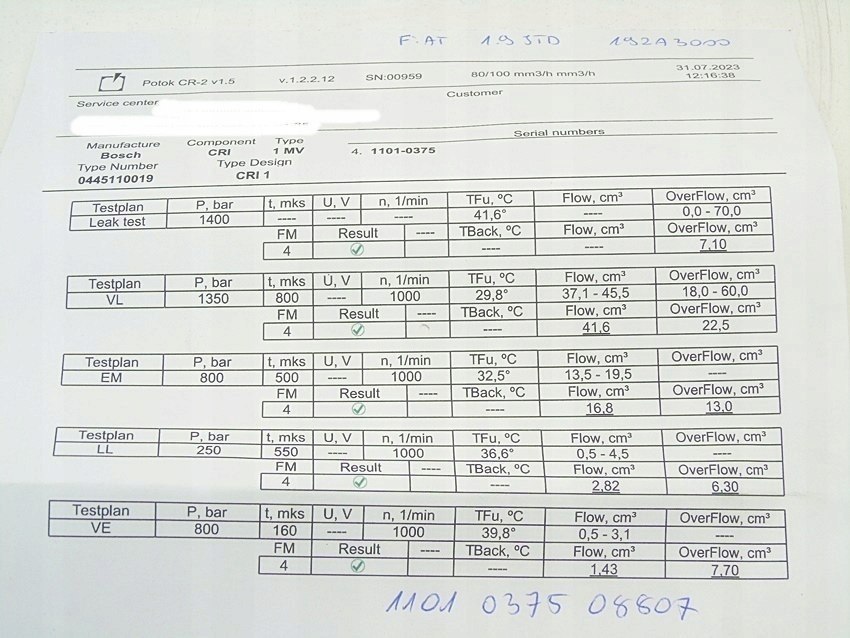 FiAT 1.9 JTD 192A3000
Potok CR-2 v1.5 v.1.2.2.12 SN:00959 80/100 mm3/h mm3/h 31.07.2023 12:16:38
Service center Customer
Manufacture Component Type Serial numbers
Bosch CRI 1 MV 4. 1101-0375
Type Number Type Design
0445110019 CRI 1
Testplan P, bar t, mks U, V n, 1/min TFu, ºC Flow, cm³ OverFlow, cm³
Leak test 1400 ---- ---- ---- 41,6° ---- 0,0 - 70,0
FM Result ---- TBack, ºC Flow, cm³ OverFlow, cm³
4 ---- ---- 7,10
Testplan P, bar t, mks U, V n, 1/min TFu, ºC Flow, cm³ OverFlow, cm³
VL 1350 800 ---- 1000 29,8° 37,1 - 45,5 18,0 - 60,0
FM Result ---- TBack, ºC Flow, cm³ OverFlow, cm³
4 ---- 41,6 22,5
Testplan P, bar t, mks U, V n, 1/min TFu, ºC Flow, cm³ OverFlow, cm³
EM 800 500 ---- 1000 32,5° 13,5 - 19,5 ----
FM Result ---- TBack, ºC Flow, cm³ OverFlow, cm³
4 ---- 16,8 13,0
Testplan P, bar t, mks U, V n, 1/min TFu, ºC Flow, cm³ OverFlow, cm³
LL 250 550 ---- 1000 36,6° 0,5 - 4,5 ----
FM Result ---- TBack, ºC Flow, cm³ OverFlow, cm³
4 ---- 2,82 6,30
Testplan P, bar t, mks U, V n, 1/min TFu, ºC Flow, cm³ OverFlow, cm³
VE 800 160 ---- 1000 39,8° 0,5 - 3,1 ----
FM Result ---- TBack, ºC Flow, cm³ OverFlow, cm³
4 ---- 1,43 7,70
1101 0375 08807